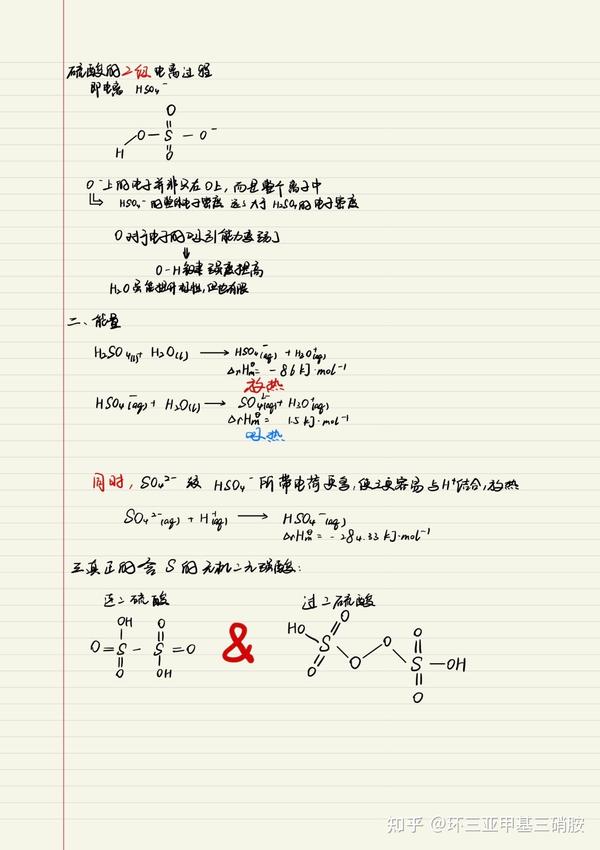 硫酸的二级电离过程
即电离 HSO₄⁻
O
O—S—O⁻
H
O
O⁻上的电子并非只在O上，而是整个离子中
HSO₄⁻的整体电子密度 远远大于H₂SO₄的电子密度
O对于电子的吸引能力变弱了
O-H键强度提高
H₂O只能提升极性，但也有限
二、能量
H₂SO₄(l) + H₂O(l) ⟶ HSO₄⁻(aq) + H₃O⁺(aq)
ΔrHm^θ = -86 kJ·mol⁻¹
放热
HSO₄⁻(aq) + H₂O(l) ⟶ SO₄²⁻(aq) + H₃O⁺(aq)
ΔrHm^θ = 15 kJ·mol⁻¹
吸热
同时，SO₄²⁻较 HSO₄⁻所带电荷更高，使之更容易与H⁺结合，放热
SO₄²⁻(aq) + H⁺(aq) ⟶ HSO₄⁻(aq)
ΔrHm^θ = -284.33 kJ·mol⁻¹
三、真正的含S的无机二元强酸：
连二硫酸 过二硫酸
OH O & HO O O
O=S—S=O S O—O S—OH
O OH O O
知乎 @环三亚甲基三硝胺